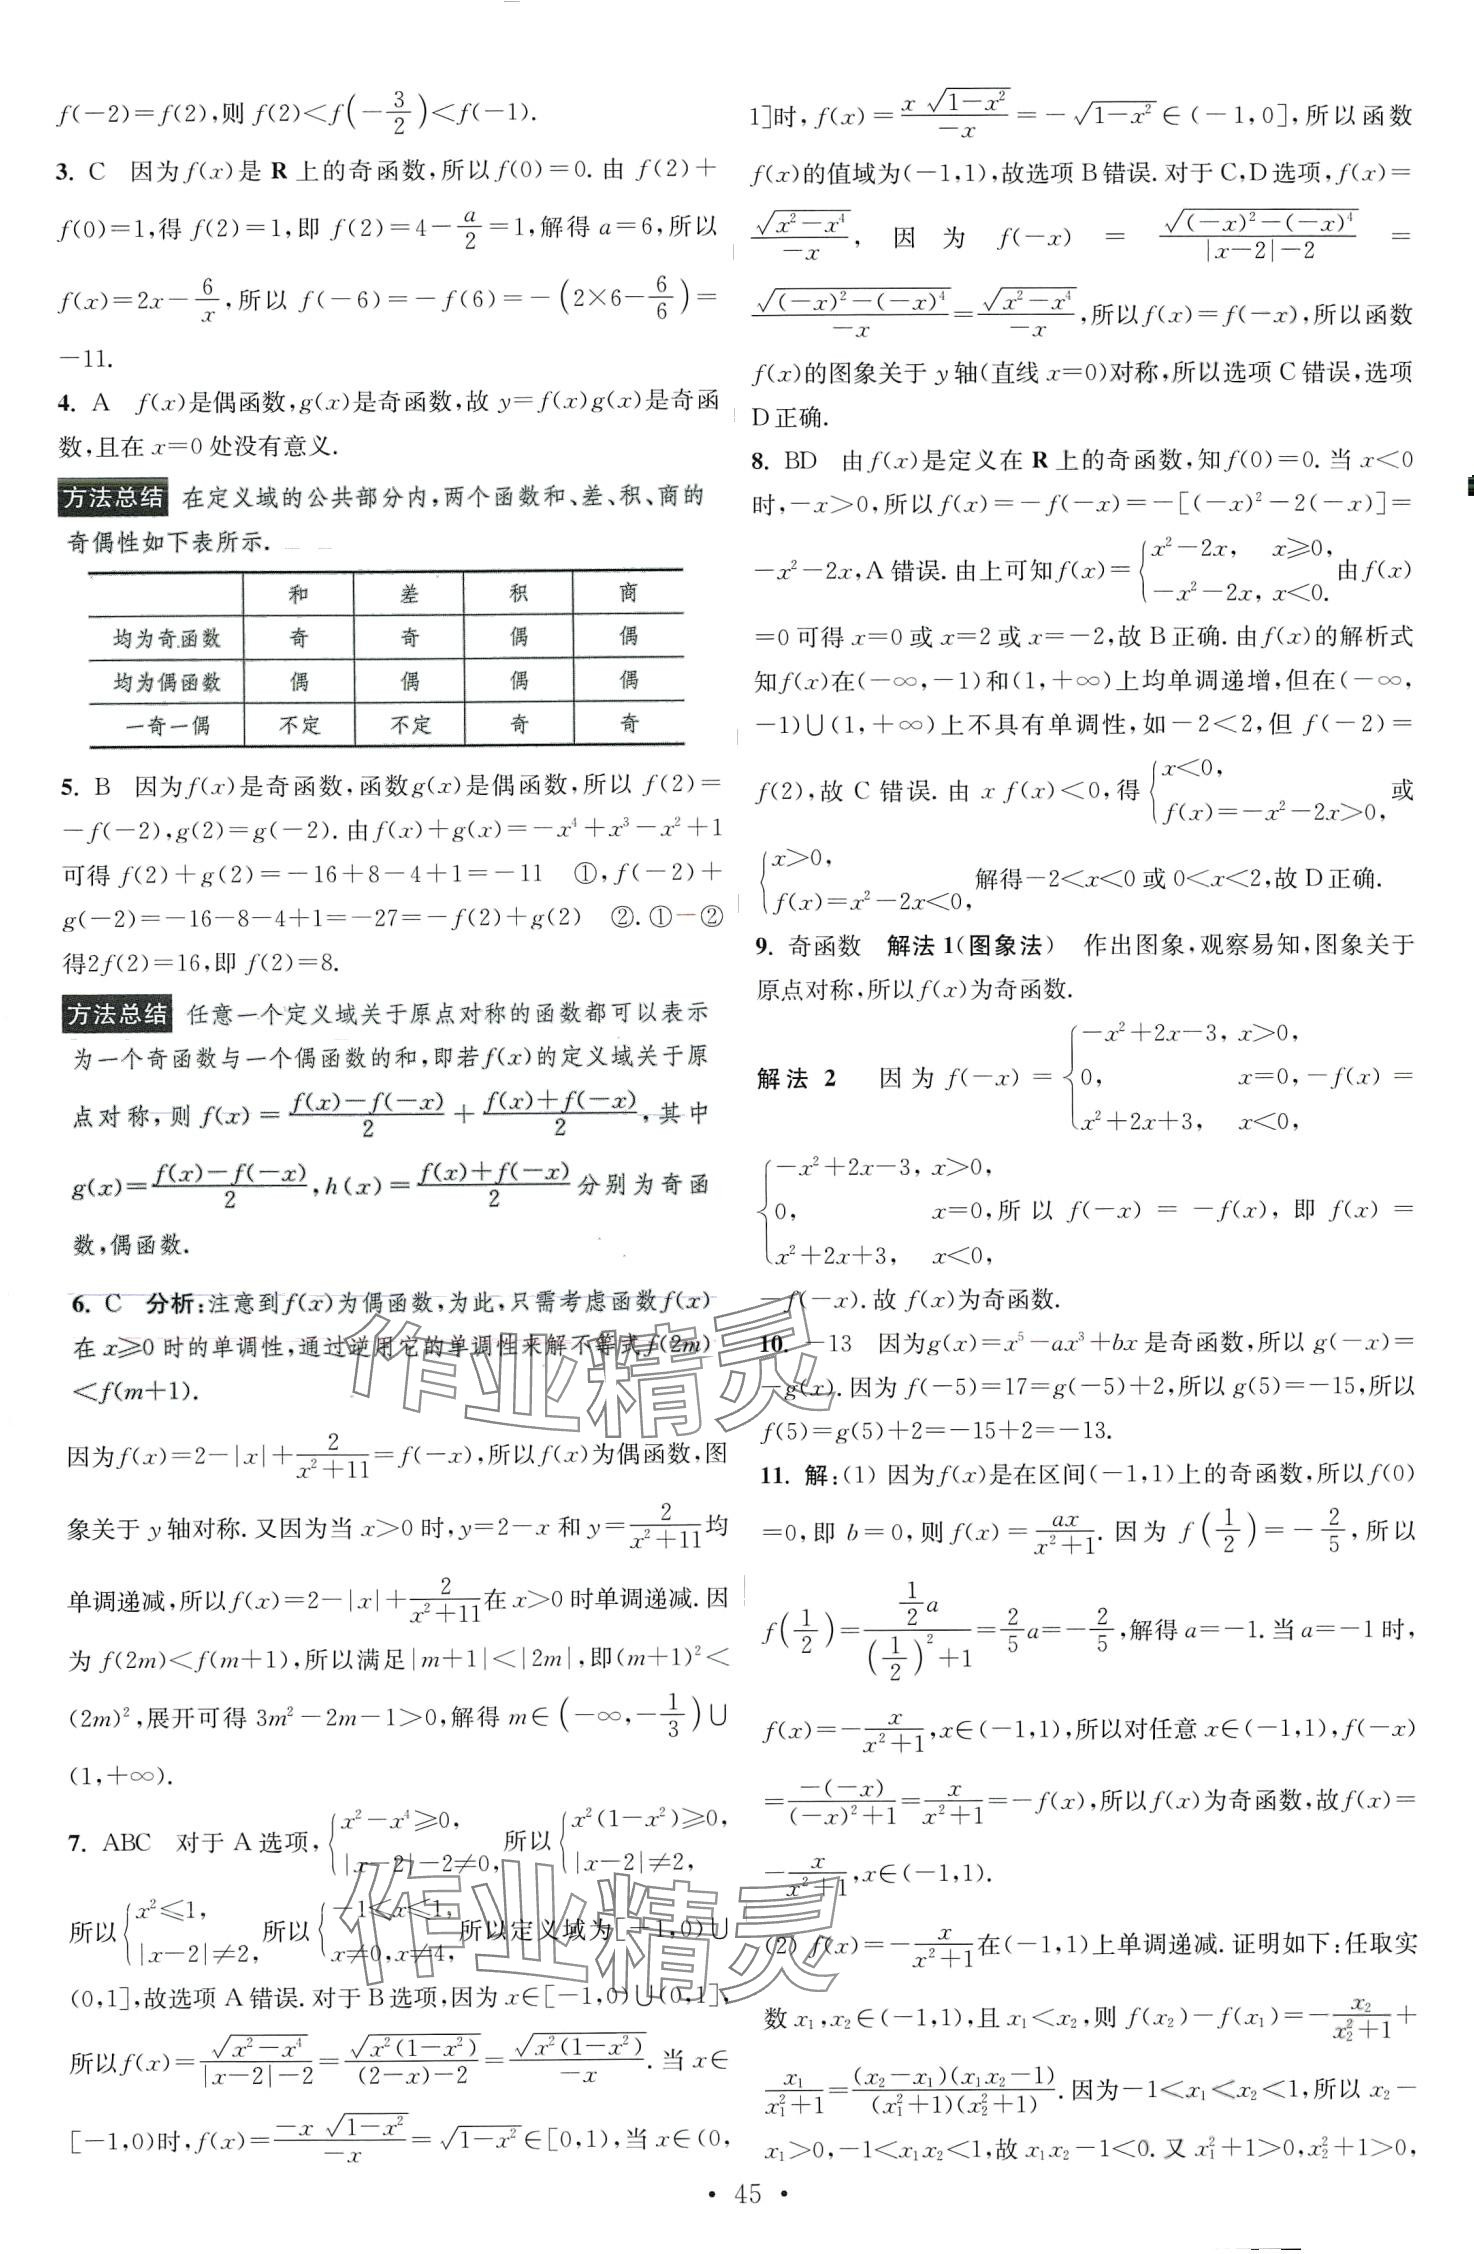 f(−2)=f(2),则 f(2)<f(−3/2)<f(−1).
3. C 因为f(x)是 R 上的奇函数,所以f(0)=0. 由 f(2)+
f(0)=1,得 f(2)=1,即 f(2)=4−a/2=1,解得 a=6,所以
f(x)=2x−6/x,所以 f(−6)=−f(6)=−(2×6−6/6)=
−11.
4. A f(x)是偶函数,g(x)是奇函数,故 y=f(x)g(x)是奇函
数,且在 x=0 处没有意义.
方法总结 在定义域的公共部分内,两个函数和、差、积、商的
奇偶性如下表所示.
和 差 积 商
均为奇函数 奇 奇 偶 偶
均为偶函数 偶 偶 偶 偶
一奇一偶 不定 不定 奇 奇
5. B 因为f(x)是奇函数,函数g(x)是偶函数,所以 f(2)=
−f(−2),g(2)=g(−2). 由f(x)+g(x)=−x⁴+x³−x²+1
可得 f(2)+g(2)=−16+8−4+1=−11 ①,f(−2)+
g(−2)=−16−8−4+1=−27=−f(2)+g(2) ②. ①−②
得2f(2)=16,即 f(2)=8.
方法总结 任意一个定义域关于原点对称的函数都可以表示
为一个奇函数与一个偶函数的和,即若f(x)的定义域关于原
点对称,则 f(x)=(f(x)−f(−x))/2+(f(x)+f(−x))/2,其中
g(x)=(f(x)−f(−x))/2,h(x)=(f(x)+f(−x))/2分别为奇函
数,偶函数.
6. C 分析:注意到f(x)为偶函数,为此,只需考虑函数f(x)
在 x⩾0 时的单调性,通过逆用它的单调性来解不等式f(2m)
<f(m+1).
因为f(x)=2−|x|+2/(x²+11)=f(−x),所以f(x)为偶函数,图
象关于 y轴对称. 又因为当 x>0 时,y=2−x 和 y=2/(x²+11)均
单调递减,所以f(x)=2−|x|+2/(x²+11)在 x>0 时单调递减. 因
为 f(2m)<f(m+1),所以满足|m+1|<|2m|,即(m+1)²<
(2m)²,展开可得 3m²−2m−1>0,解得 m∈(−∞,−1/3)∪
(1,+∞).
7. ABC 对于 A 选项,{x²−x⁴⩾0, |x−2|−2≠0, 所以{x²(1−x²)⩾0, |x−2|≠2,
所以{x²⩽1, |x−2|≠2, 所以{−1⩽x⩽1, x≠0,x≠4, 所以定义域为[−1,0)∪
(0,1],故选项 A错误. 对于 B选项,因为 x∈[−1,0)∪(0,1],
所以f(x)=√(x²−x⁴)/(|x−2|−2)=√(x²(1−x²))/((2−x)−2)=√(x²(1−x²))/(−x). 当 x∈
[−1,0)时,f(x)=−x√(1−x²)/(−x)=√(1−x²)∈[0,1),当 x∈(0,
1]时,f(x)=x√(1−x²)/(−x)=−√(1−x²)∈(−1,0],所以函数
f(x)的值域为(−1,1),故选项 B错误. 对于 C,D选项,f(x)=
√(x²−x⁴)/(−x),因为 f(−x)=√((−x)²−(−x)⁴)/(|x−2|−2)=
√((−x)²−(−x)⁴)/(−x)=√(x²−x⁴)/(−x),所以f(x)=f(−x),所以函数
f(x)的图象关于 y轴(直线 x=0)对称,所以选项 C错误,选项
D正确.
8. BD 由 f(x)是定义在 R 上的奇函数,知f(0)=0. 当 x<0
时,−x>0,所以 f(x)=−f(−x)=−[(−x)²−2(−x)]=
−x²−2x,A 错误. 由上可知f(x)={x²−2x, x⩾0, −x²−2x, x<0. 由 f(x)
=0 可得 x=0 或 x=2 或 x=−2,故 B正确. 由 f(x)的解析式
知f(x)在(−∞,−1)和(1,+∞)上均单调递增,但在(−∞,
−1)∪(1,+∞)上不具有单调性,如−2<2,但 f(−2)=
f(2),故 C 错误. 由 x f(x)<0,得{x<0, f(x)=−x²−2x>0, 或
{x>0, f(x)=x²−2x<0, 解得−2<x<0 或 0<x<2,故 D正确.
9. 奇函数 解法 1(图象法) 作出图象,观察易知,图象关于
原点对称,所以f(x)为奇函数.
解法 2 因为 f(−x)={−x²+2x−3, x>0, 0, x=0, x²+2x+3, x<0, −f(x)=
{−x²+2x−3, x>0, 0, x=0, x²+2x+3, x<0, 所以 f(−x)=−f(x),即 f(x)=
−f(−x). 故 f(x)为奇函数.
10. −13 因为g(x)=x⁵−ax³+bx 是奇函数,所以 g(−x)=
−g(x). 因为 f(−5)=17=g(−5)+2,所以 g(5)=−15,所以
f(5)=g(5)+2=−15+2=−13.
11. 解:(1) 因为f(x)是在区间(−1,1)上的奇函数,所以f(0)
=0,即 b=0,则 f(x)=ax/(x²+1). 因为 f(1/2)=−2/5,所以
f(1/2)=(1/2 a)/((1/2)²+1)=2/5a=−2/5,解得 a=−1. 当 a=−1 时,
f(x)=−x/(x²+1),x∈(−1,1),所以对任意 x∈(−1,1),f(−x)
=−(−x)/((−x)²+1)=x/(x²+1)=−f(x),所以f(x)为奇函数,故f(x)=
−x/(x²+1),x∈(−1,1).
(2) f(x)=−x/(x²+1)在(−1,1)上单调递减. 证明如下:任取实
数 x₁,x₂∈(−1,1),且 x₁<x₂,则 f(x₂)−f(x₁)=−x₂/(x₂²+1)+
x₁/(x₁²+1)=(x₂−x₁)(x₁x₂−1)/((x₁²+1)(x₂²+1)). 因为−1<x₁<x₂<1,所以 x₂−
x₁>0,−1<x₁x₂<1,故 x₁x₂−1<0. 又 x₁²+1>0,x₂²+1>0,
• 45 •
作业精灵
作业精灵